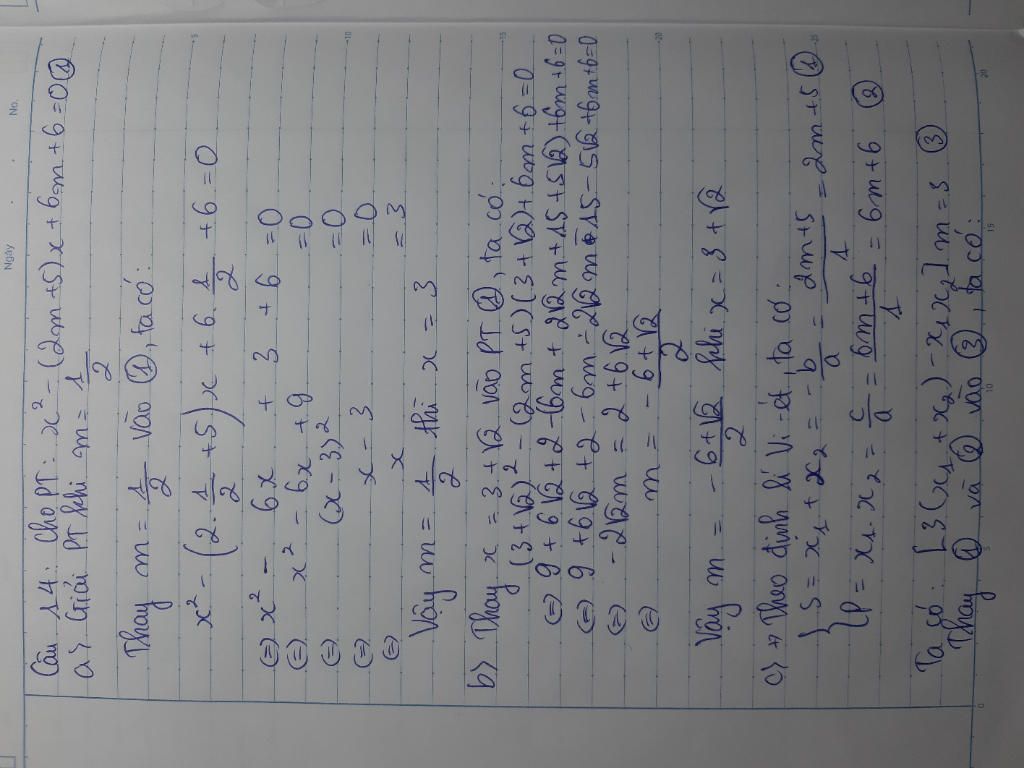 Ngày
No.
Câu 14: Cho PT: x² - (2m+5)x + 6m + 6 = 0 ①
a> Giải PT khi m = 1/2
Thay m = 1/2 vào ①, ta có:
x² - (2.1/2 + 5)x + 6.1/2 + 6 = 0
(=) x² - 6x + 3 + 6 = 0
(=) x² - 6x + 9 = 0
(=) (x - 3)² = 0
(=) x - 3 = 0
(=) x = 3
Vậy m = 1/2 thì x = 3
b> Thay x = 3 + √2 vào PT ①, ta có:
(3 + √2)² - (2m + 5)(3 + √2) + 6m + 6 = 0
(=) 9 + 6√2 + 2 - (6m + 2√2m + 15 + 5√2) + 6m + 6 = 0
(=) 9 + 6√2 + 2 - 6m - 2√2m - 15 - 5√2 + 6m + 6 = 0
(=) - 2√2m = 2 + 6√2
(=) m = - 6+√2/2
Vậy m = - 6+√2/2 khi x = 3 + √2
c) Theo định lí Vi-ét, ta có:
{ S = x₁ + x₂ = - b/a = 2m+5/1 = 2m + 5 ①
{ P = x₁.x₂ = c/a = 6m+6/1 = 6m + 6 ②
Ta có: [3(x₁ + x₂) - x₁x₂] m = 3 ③
Thay ① và ② vào ③, ta có:
0
5
10
15
20
5
10
15
20
25